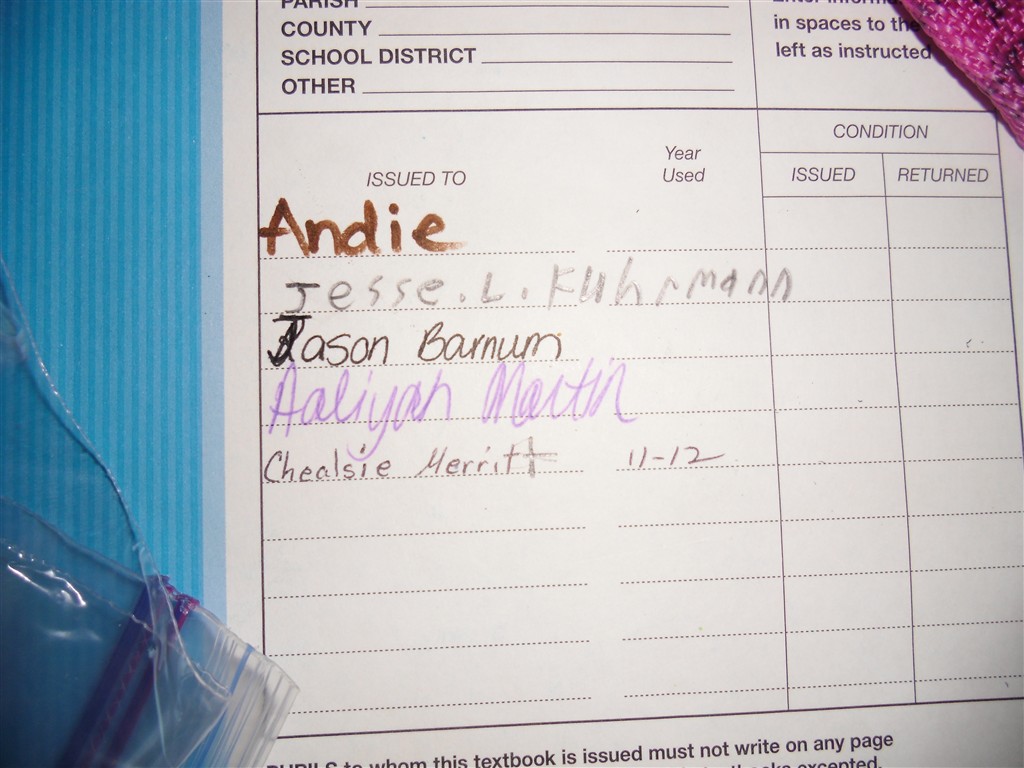 PARISH
COUNTY
SCHOOL DISTRICT
OTHER
in spaces to the
left as instructed
CONDITION
ISSUED TO
Year
Used
ISSUED
RETURNED
Andie
Jesse. L. Kuhrmann
Jason Barnum
Aaliyah Martin
Chealsie Merritt 11-12
PUPILS to whom this textbook is issued must not write on any page
excepted.